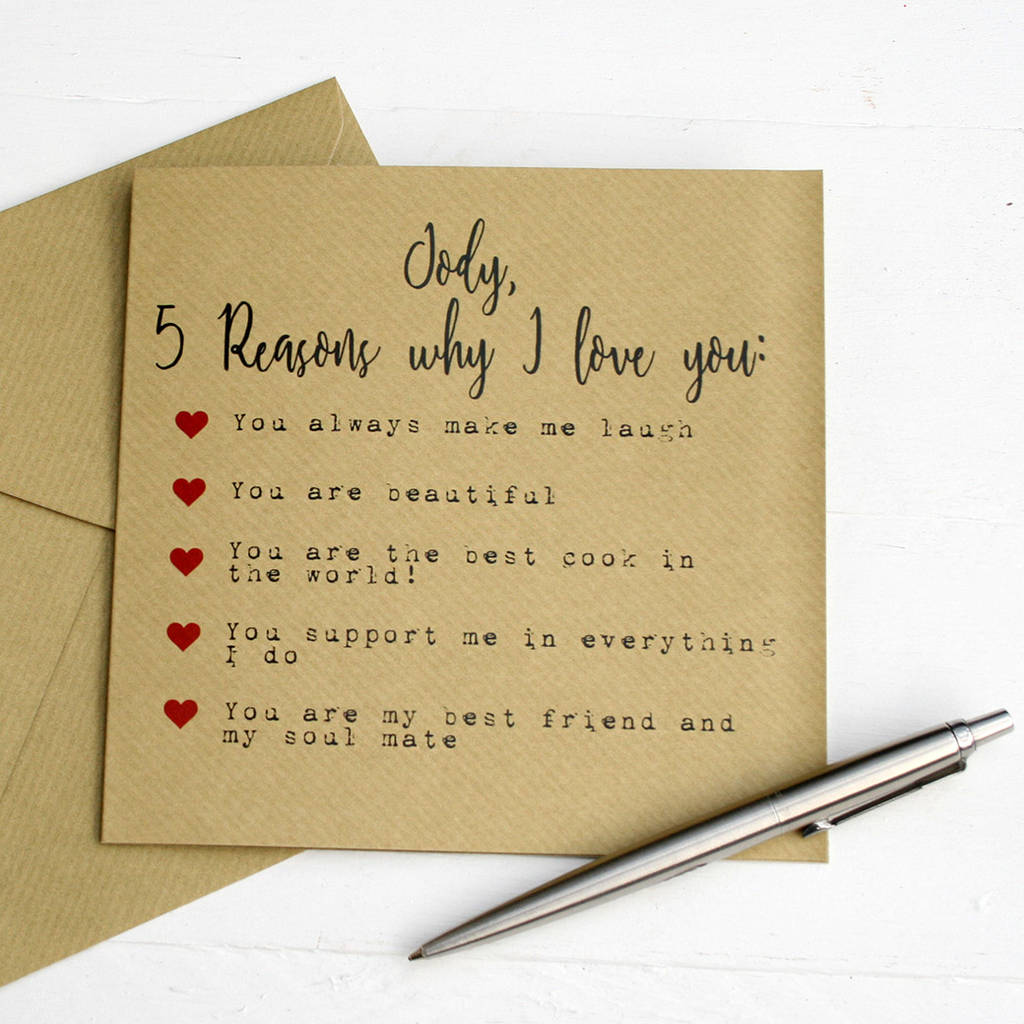 Jody,
5 Reasons why I love you:
You always make me laugh
You are beautiful
You are the best cook in
the world!
You support me in everything
I do
You are my best friend and
my soul mate